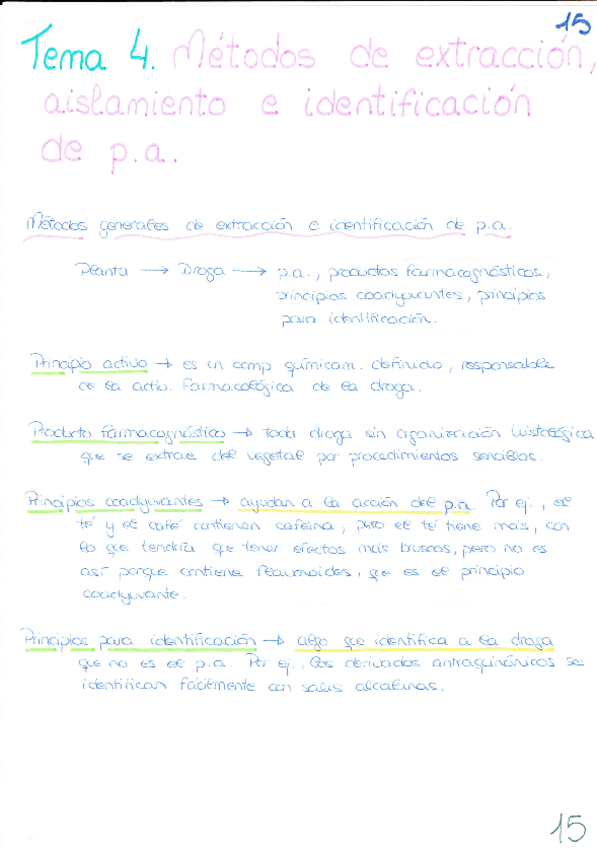 15
Tema 4. Métodos de extracción,
aislamiento e identificación
de p.a.
Métodos generales de extracción e identificación de p.a.
Planta → Droga → p.a., productos farmacognósticos,
principios coadyuvantes, principios
para identificación.
Principio activo → es un comp químicam. definido, responsable
de la activ. farmacológica de la droga.
Producto farmacognóstico → toda droga sin organización histológica
que se extrae del vegetal por procedimientos sencillos.
Principios coadyuvantes → ayudan a la acción del p.a. Por ej., el
té y el café contienen cafeína, pero el té tiene más, con
lo que tendría que tener efectos más bruscos, pero no es
así porque contiene flavonoides, que es el principio
coadyuvante.
Principios para identificación → algo que identifica a la droga
que no es el p.a. Por ej., los derivados antraquinónicos se
identifican fácilmente con sales alcalinas.
15